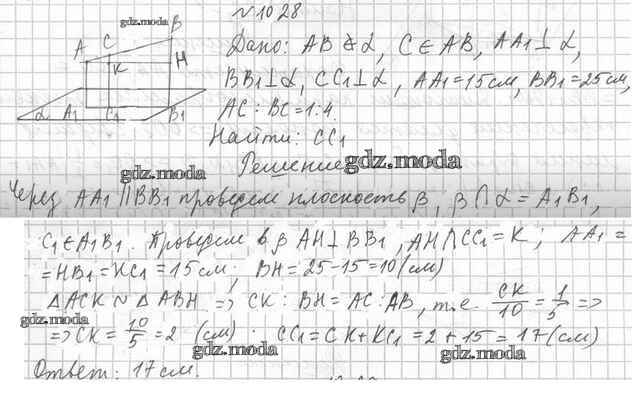 №1028
gdz.moda
Дано: AB ∉ α, C ∈ AB, AA1 ⊥ α,
BB1 ⊥ α, CC1 ⊥ α, AA1 = 15 см, BB1 = 25 см,
AC : BC = 1:4.
Найти: CC1
A C B K H α A1 C1 B1
Решение
gdz.moda
gdz.moda
Через AA1 || BB1 проведем плоскость β, β ∩ α = A1B1,
C1 ∈ A1B1. Проведем в β AH ⊥ BB1, AH ∩ CC1 = K; AA1 =
= HB1 = KC1 = 15 см; BH = 25-15 = 10 (см)
△ACK ~ △ABH => CK : BH = AC : AB, т.е. CK/10 = 1/5 =>
gdz.moda
=> CK = 10/5 = 2 (см). CC1 = CK + KC1 = 2 + 15 = 17 (см)
gdz.moda
gdz.moda
Ответ: 17 см.